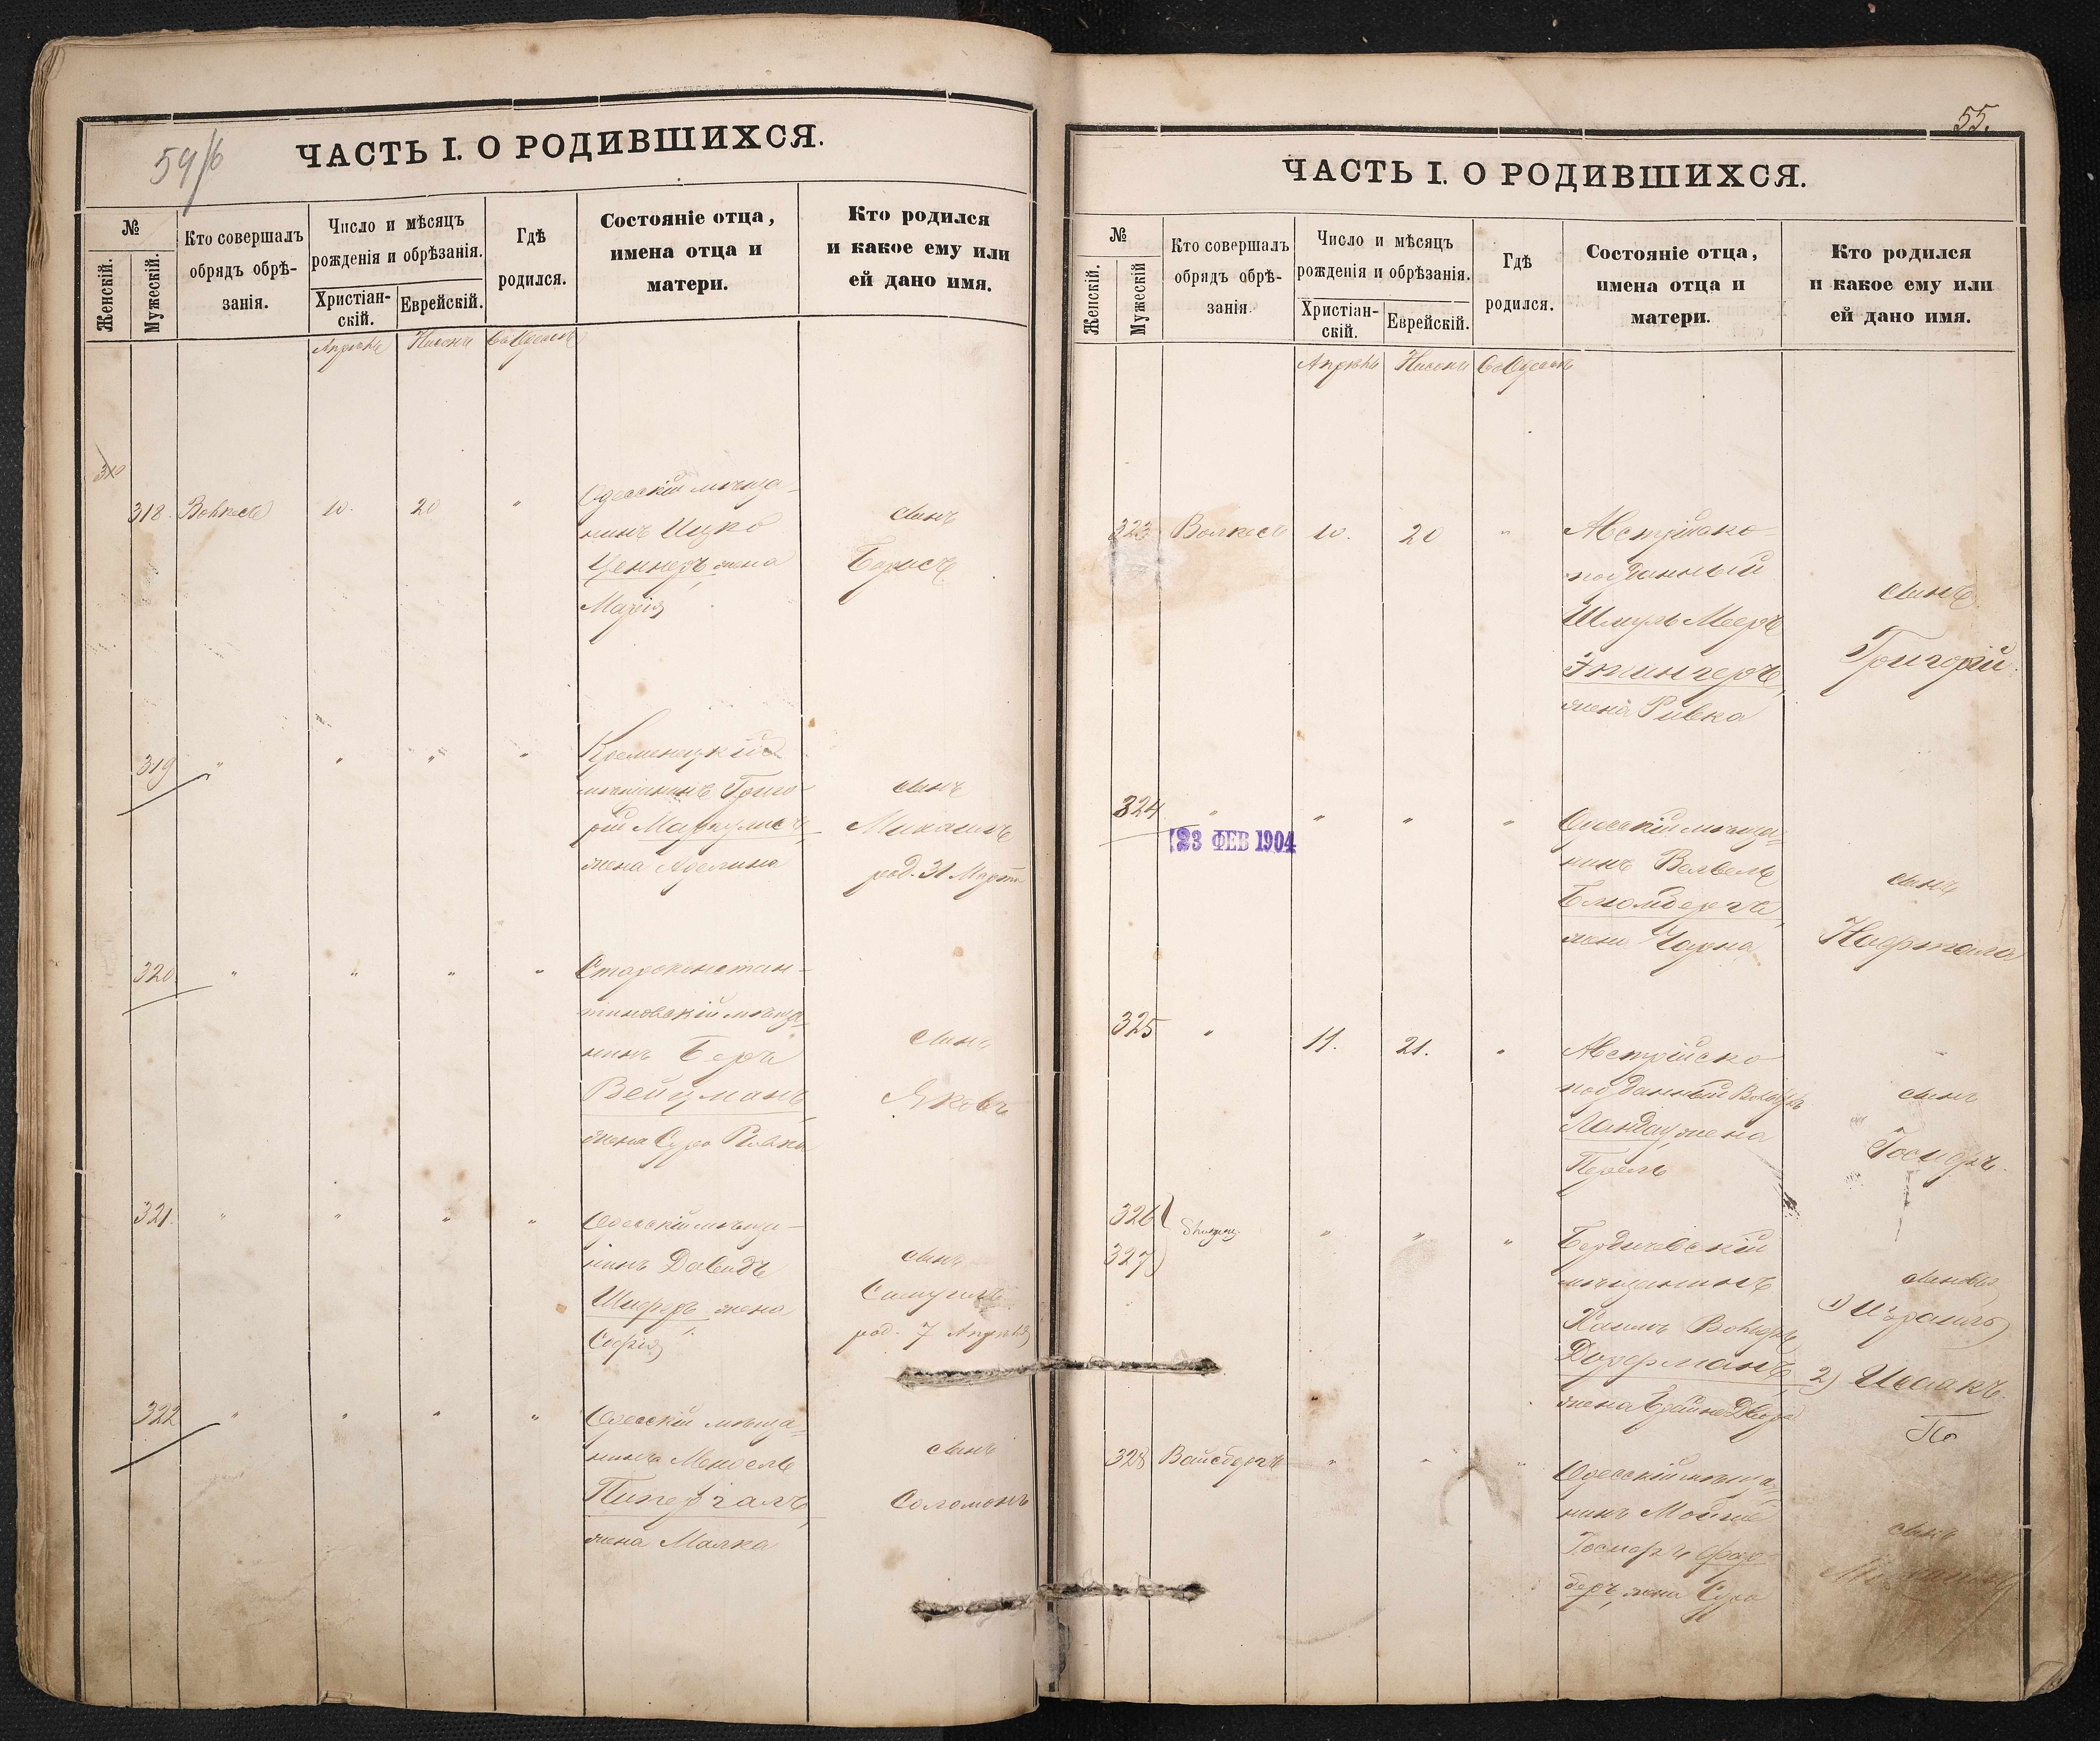 ЧАСТЬ I. О РОДИВШИХСЯ.
№
Женскій.
Мужескій.
Кто совершалъ
обрядъ обрѣ-
занія.
Число и мѣсяцъ
рожденія и обрѣзанія.
Христіан-
скій.
Еврейскій.
Гдѣ
родился.
Состояніе отца,
имена отца и
матери.
Кто родился
и какое ему или
ей дано имя.
Апрѣль Нисонъ Въ Одессѣ
318. 10. 20 "
Одесскій мѣща-
нинъ Ицко
Ценнеръ, жена
Марія
сынъ
Борисъ
319 " " " "
Кременецкій
мѣщанинъ Григо-
рій Маргулисъ,
жена Аделина
сынъ
Михаилъ
род. 31 Марта
320. " " " "
Староконстан-
тиновскій мѣща-
нинъ Беръ
Вейцманъ,
жена Сура Ривка
сынъ
Яковъ
321. " " " "
Одесскій мѣща-
нинъ Давидъ
Шифръ, жена
Софія
сынъ
Самуилъ
род. 7 Апрѣля
322 " " " "
Одесскій мѣща-
нинъ Мендель
жена Малка
сынъ
Соломонъ
55.
ЧАСТЬ I. О РОДИВШИХСЯ.
№
Женскій.
Мужескій
Кто совершалъ
обрядъ обрѣ-
занія.
Число и мѣсяцъ
рожденія и обрѣзанія.
Христіан-
скій.
Еврейскій.
Гдѣ
родился.
Состояніе отца,
имена отца и
матери.
Кто родился
и какое ему или
ей дано имя.
Апрѣль Нисонъ Въ Одессѣ
323 10. 20 "
Австрійско-
подданный
Шмуль Мееръ
жена Ривка
сынъ
Григорій.
324 " " " "
23 ФЕВ 1904
Одесскій мѣща-
нинъ Вольвель
Блюмбергъ,
жена Чарна
сынъ
Нафтала
325 " 11. 21. "
Австрійско
подданный Вольфъ
Ландау, жена
Перель
сынъ
Іосифъ.
326
327 " " "
Бердичевскій
мѣщанинъ
Хаимъ Вольфъ
Дорфманъ,
сыновья
1) Израиль
2) Исаакъ.
328 Вайсбергъ " " "
Одесскій мѣща-
нинъ
Іосифъ
беръ, жена Сура
сынъ